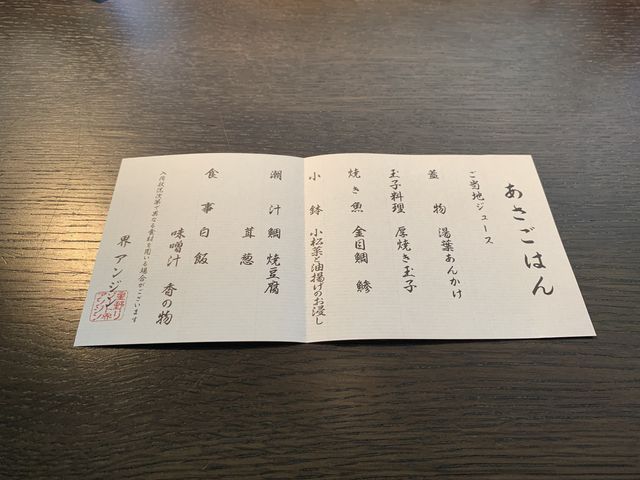 あさごはん
ご当地ジュース
蓋物 湯葉あんかけ
玉子料理 厚焼き玉子
焼き魚 金目鯛 鯵
小鉢 小松菜と油揚げのお浸し
潮汁 鯛 焼豆腐
茸 葱
食事 白飯
味噌汁 香の物
入荷状況次第で異なる食材を用いる場合がございます
界 アンジン